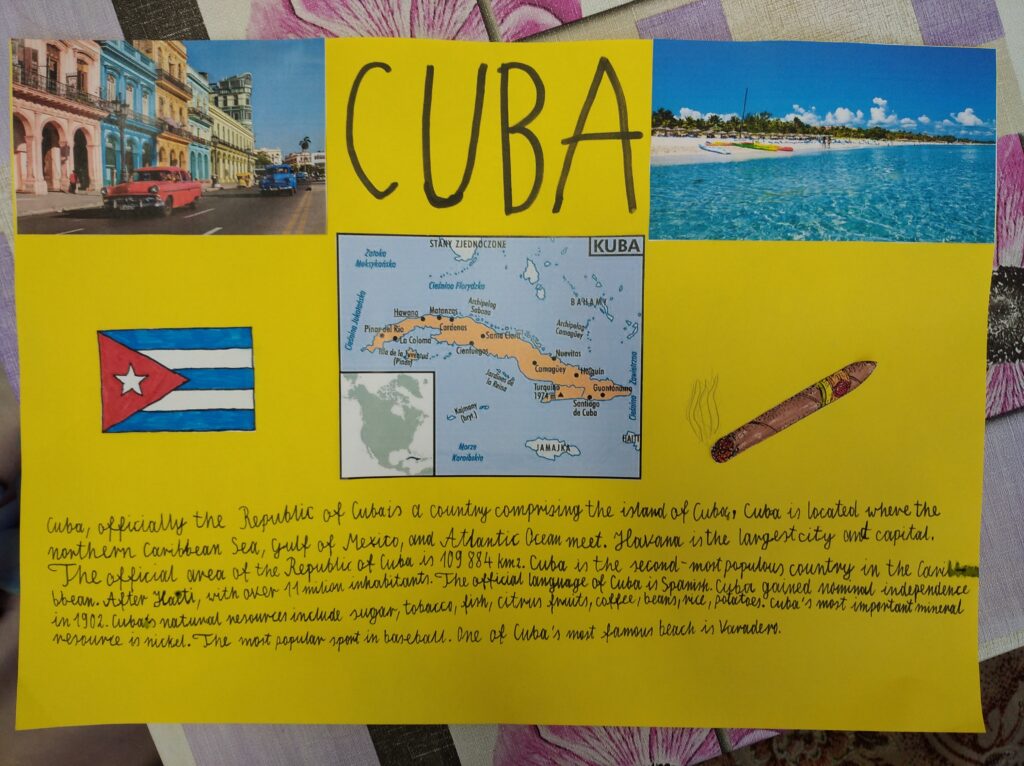 CUBA
STANY ZJEDNOCZONE
KUBA
Zatoka
Meksykańska
Cieśnina Florydzka
Cieśnina Jukatańska
BAHAMY
Archipelag
Sabana
Hawana
Matanzas
Cardenas
Pinar del Rio
La Coloma
Santa Clara
Archipelag
Camagüey
Isla de la Juventud
(Pinos)
Cienfuegos
Nuevitas
Camagüey
Holguin
Jardines de
la Reina
Turquino
1974
Guantánamo
Santiago
de Cuba
Cieśnina Zawietrzna
Kajmany
(bryt.)
Morze
Karaibskie
JAMAJKA
HAITI
Cuba, officially the Republic of Cuba is a country comprising the island of Cuba, Cuba is located where the
northern Caribbean Sea, Gulf of Mexico, and Atlantic Ocean meet. Havana is the largest city and capital.
The official area of the Republic of Cuba is 109 884 km2. Cuba is the second-most populous country in the Cari
bbean. After Haiti, with over 11 milion inhabitants. The official language of Cuba is Spanish. Cuba gained nominal independence
in 1902. Cuba's natural resources include sugar, tobacco, fish, citrus fruits, coffee, beans, rice, potatoes. Cuba's most important mineral
resource is nickel. The most popular sport in baseball. One of Cuba's most famous beach is Varadero.